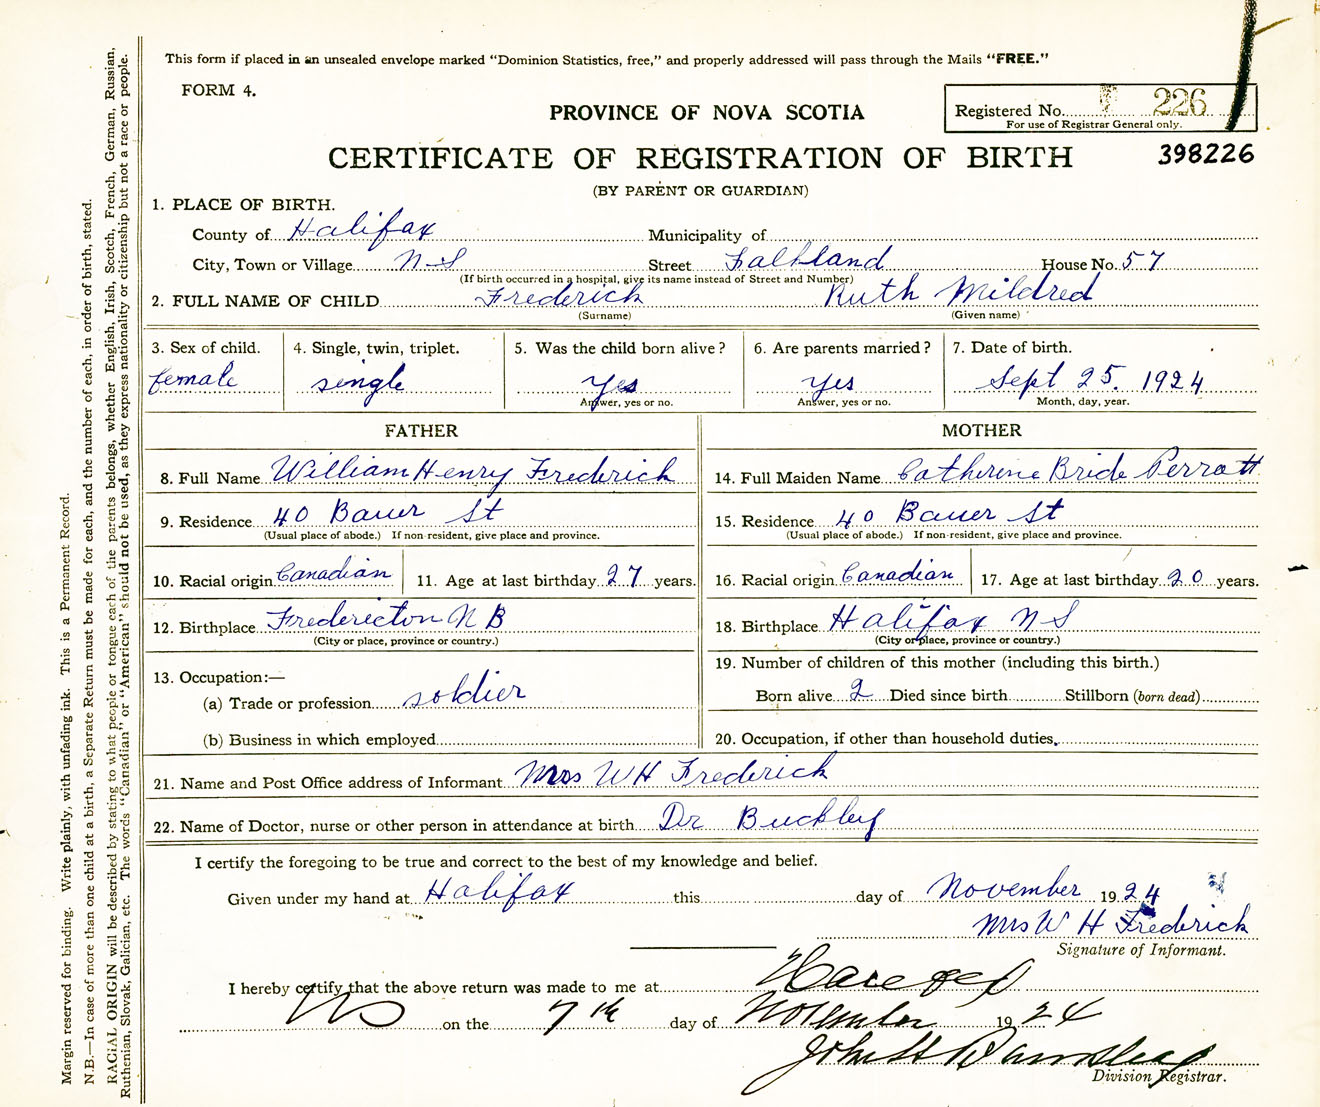 This form if placed in an unsealed envelope marked "Dominion Statistics, free," and properly addressed will pass through the Mails "FREE."
FORM 4.
PROVINCE OF NOVA SCOTIA
Registered No. 226
For use of Registrar General only.
CERTIFICATE OF REGISTRATION OF BIRTH
398226
(BY PARENT OR GUARDIAN)
1. PLACE OF BIRTH.
County of Halifax Municipality of
City, Town or Village N-S Street Falkland House No. 57
(If birth occurred in a hospital, give its name instead of Street and Number)
2. FULL NAME OF CHILD Frederick Ruth Mildred
(Surname) (Given name)
3. Sex of child. 4. Single, twin, triplet. 5. Was the child born alive? 6. Are parents married? 7. Date of birth.
female single Yes Yes Sept 25. 1924
Answer, yes or no. Answer, yes or no. Month, day, year.
FATHER MOTHER
8. Full Name William Henry Frederick 14. Full Maiden Name Catherine Bride Perrott
9. Residence 40 Bauer St 15. Residence 40 Bauer St
(Usual place of abode.) If non-resident, give place and province. (Usual place of abode.) If non-resident, give place and province.
10. Racial origin Canadian 11. Age at last birthday 27 years. 16. Racial origin Canadian 17. Age at last birthday 20 years.
12. Birthplace Fredericton N B 18. Birthplace Halifax N S
(City or place, province or country.) (City or place, province or country.)
13. Occupation:— 19. Number of children of this mother (including this birth.)
(a) Trade or profession soldier Born alive 2 Died since birth Stillborn (born dead)
(b) Business in which employed 20. Occupation, if other than household duties.
21. Name and Post Office address of Informant Mrs W H Frederick
22. Name of Doctor, nurse or other person in attendance at birth Dr Buckley
I certify the foregoing to be true and correct to the best of my knowledge and belief.
Given under my hand at Halifax this day of November 1924
Mrs W H Frederick
Signature of Informant.
I hereby certify that the above return was made to me at Halifax
NS on the 7th day of November 1924
John H
Division Registrar.
Margin reserved for binding. Write plainly, with unfading ink. This is a Permanent Record.
N.B.—In case of more than one child at a birth, a Separate Return must be made for each, and the number of each, in order of birth, stated.
RACIAL ORIGIN will be described by stating to what people or tongue each of the parents belongs, whether English, Irish, Scotch, French, German, Russian,
Ruthenian, Slovak, Galician, etc. The words "Canadian" or "American" should not be used, as they express nationality or citizenship but not a race or people.